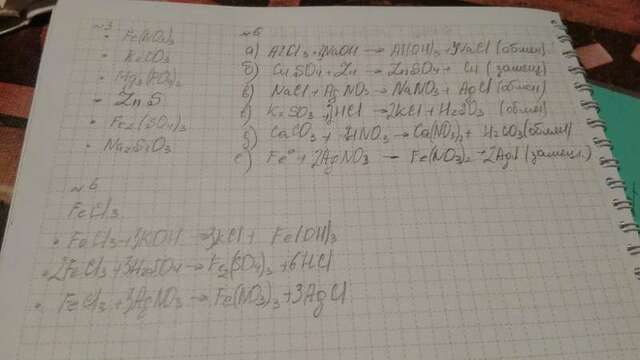 ~3
Fe(NO3)3
K2CO3
Mg3(PO4)2
ZnS
Fe2(SO4)3
Na2SiO3
а) AlCl3 + 3NaOH → Al(OH)3 + 3NaCl (обмен)
б) CuSO4 + Zn → ZnSO4 + Cu (замещ)
в) NaCl + AgNO3 → NaNO3 + AgCl (обмен)
K2SO3 + 2HCl → 2KCl + H2SO3 (обмен)
CaCO3 + 2HNO3 → Ca(NO3)2 + H2CO3 (обмен)
е) Fe + 2AgNO3 — Fe(NO3)2 + 2Ag (замещ.)
~6
FeCl3
FeCl3 + 3KOH → 3KCl + Fe(OH)3
2FeCl3 + 3H2SO4 → Fe2(SO4)3 + 6HCl
FeCl3 + 3AgNO3 → Fe(NO3)3 + 3AgCl